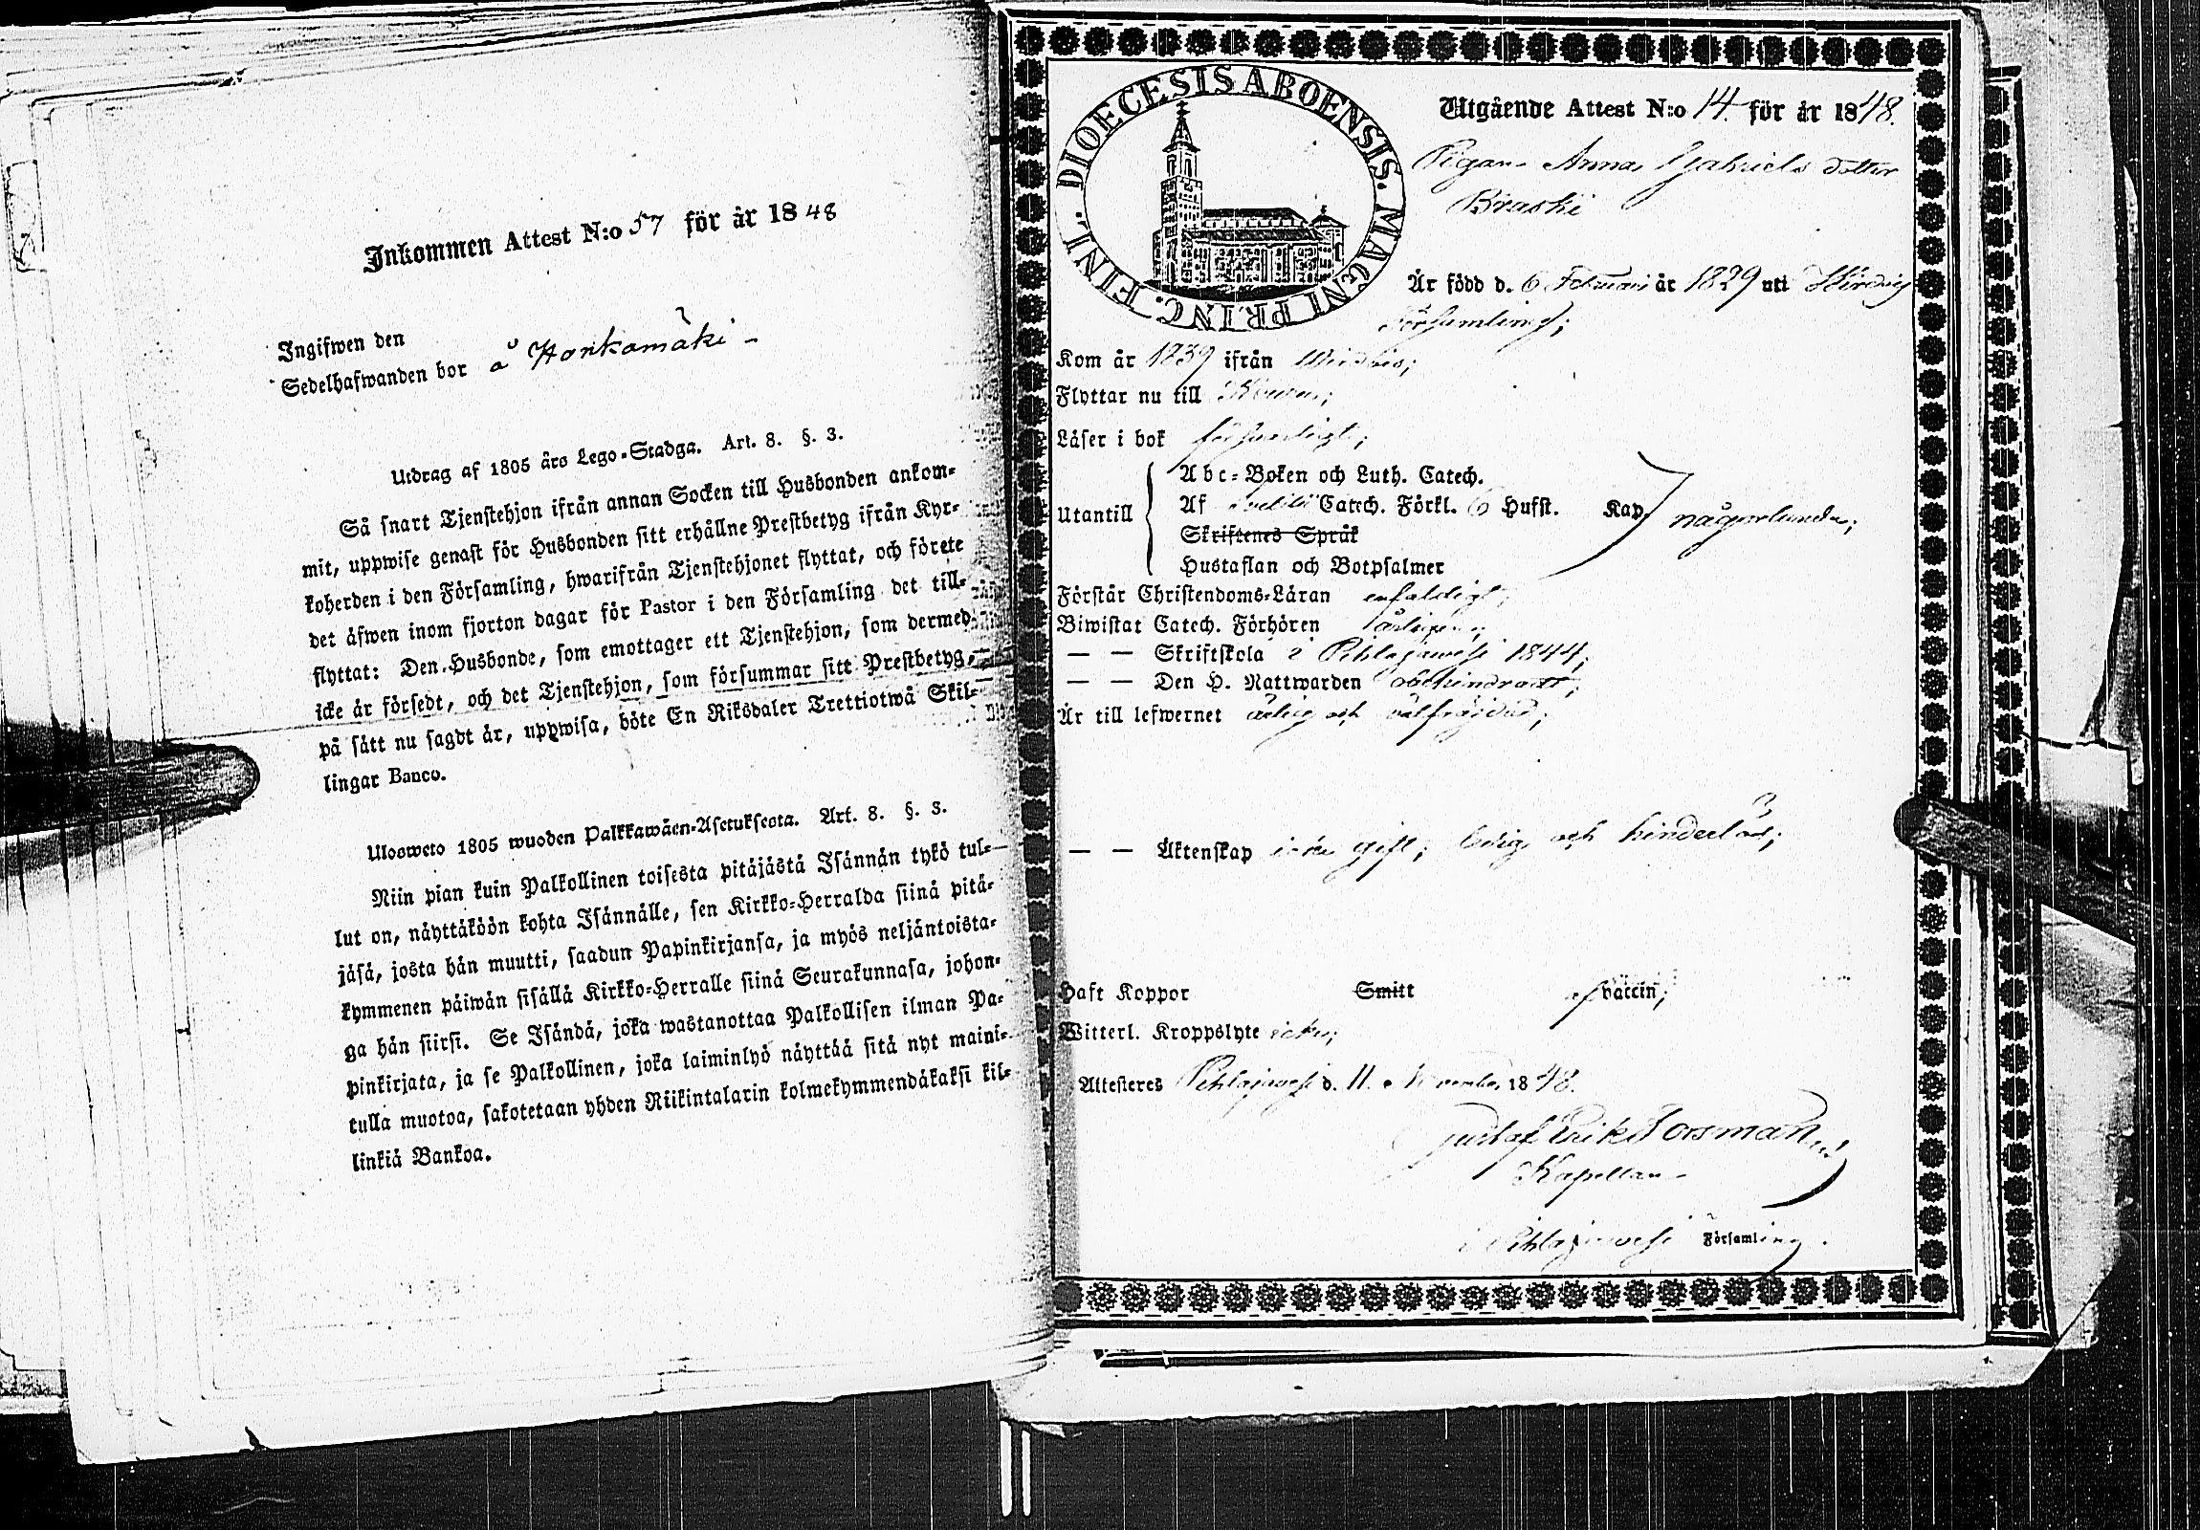 Inkommen Attest N:o 57 för år 1848
Ingifwen den
Sedelhafwanden bor å Honkamäki -
Utdrag af 1805 års Lego-Stadga. Art. 8. §. 3.
Så snart Tjenstehjon ifrån annan Socken till Husbonden ankom-
mit, uppwise genast för Husbonden sitt erhållne Prestbetyg ifrån Kyr-
koherden i den Församling, hwarifrån Tjenstehjonet flyttat, och förete
det äfwen inom fjorton dagar för Pastor i den Församling det till-
flyttat: Den Husbonde, som emottager ett Tjenstehjon, som dermed
icke är försedt, och det Tjenstehjon, som försummar sitt Prestbetyg,
på sätt nu sagdt är, uppwisa, böte En Riksdaler Trettiotwå Skil-
lingar Banco.
Ulosweto 1805 wuoden Palkkawäen-Asetuksesta. Art. 8. §. 3.
Niin pian kuin Palkollinen toisesta pitäjästä Isännän tykö tul-
lut on, näyttäköön kohta Isännälle, sen Kirkko-Herralda siinä pitä-
jäsä, josta hän muutti, saadun Papinkirjansa, ja myös neljäntoista-
kymmenen päiwän sisällä Kirkko-Herralle siinä Seurakunnasa, johon-
ga hän siirsi. Se Isändä, joka wastanottaa Palkollisen ilman Pa-
pinkirjata, ja se Palkollinen, joka laiminlyö näyttää sitä nyt maini-
tulla muotoa, sakotetaan yhden Riikintalarin kolmekymmendäkaksi kil-
linkiä Bankoa.
DIOECESIS ABOENSIS. MAGNI PRINC. FINL.
Utgående Attest N:o 14. för år 1848.
Pigan Anna Gabriels dotter
Braski
Är född d. 6 Februari år 1829 uti
Församling;
Kom år 1839 ifrån
Flyttar nu till
Läser i bok försvarligt;
Utantill
Abc-Boken och Luth. Catech.
Af Catech. Förkl. 6 Hufst. Kap
Skriftenes Språk
Hustaflan och Botpsalmer
någorlunda;
Förstår Christendoms-Läran enfaldigt;
Biwistat Catech. Förhören årligen;
— — Skriftskola i Pihlajawesi 1844;
— — Den H. Nattwarden obehindradt;
Är till lefwernet ärlig och välfräjdad;
— — Äktenskap icke gift; ledig och hinderlös;
Haft Koppor Smitt af vaccin;
Witterl. Kroppslyte icke;
Attesteres Pihlajawesi d. 11. November 1848.
Gustaf Erik Forsman
Kapellan
i Pihlajawesi Församling.